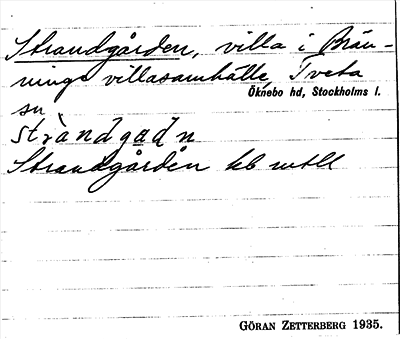 Strandgården, villa i Brän-
ninge villasamhälle, Tveta
sn
Öknebo hd, Stockholms l.
stràndgaḍn
Strandgården kb mtll
GÖRAN ZETTERBERG 1935.